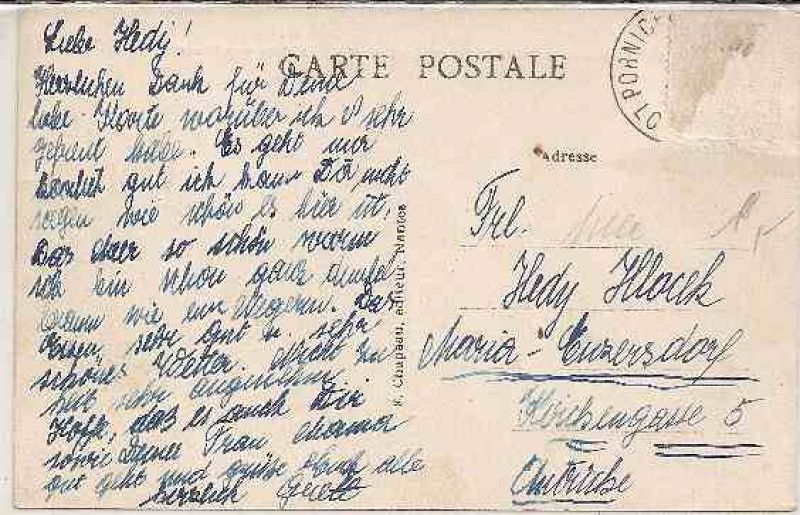 Liebe Hedy!
Herzlichen Dank für Deine
liebe Karte worüber ich sehr
gefreut habe. Es geht mir
gut ich kann Dir nicht
sagen wie schön es hier ist.
Das Meer so schön warm
ich bin schon ganz dunkel
braun wie ein Negerin. Das
Essen, sehr gut u. sehr
schönes Wetter. Nicht zu
sehr angenehm
Hoffe, daß es auch Dir
sowie Deiner Frau Mama
gut geht und grüße Euch alle
herzlich
CARTE POSTALE
07 PORNIC
Adresse
Frl.
Hedy Hlocek
Maria-Enzersdorf
Kirchengasse 5
Autriche
Chapeau, éditeur, Nantes